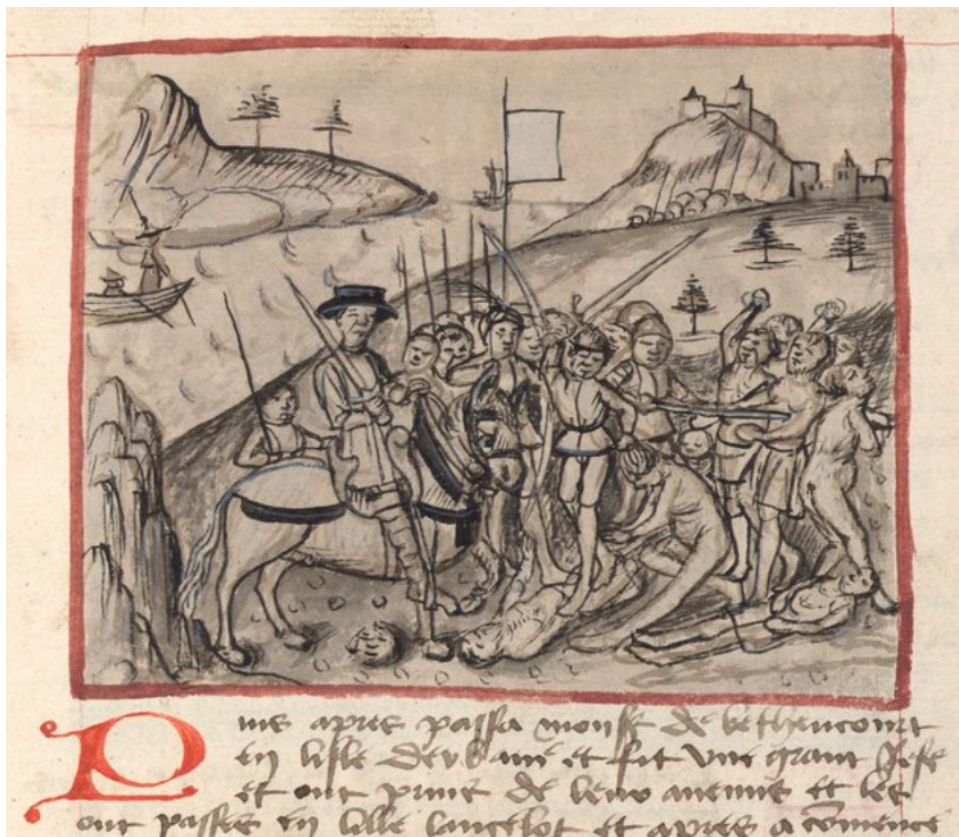 Puis apres passa monsr de bethencourt
en lisle derbanie et fit une grant
et ont prins de leurs et les
ont passes en lille lancelot et apres a comence